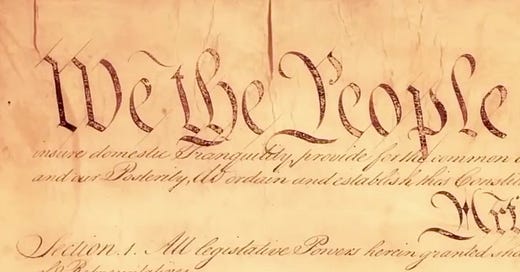 We the People
insure domestic Tranquility, provide for the common
and our Posterity, do ordain and establish this Constit
Art
Section. 1. All legislative Powers herein granted sha
of Representatives.